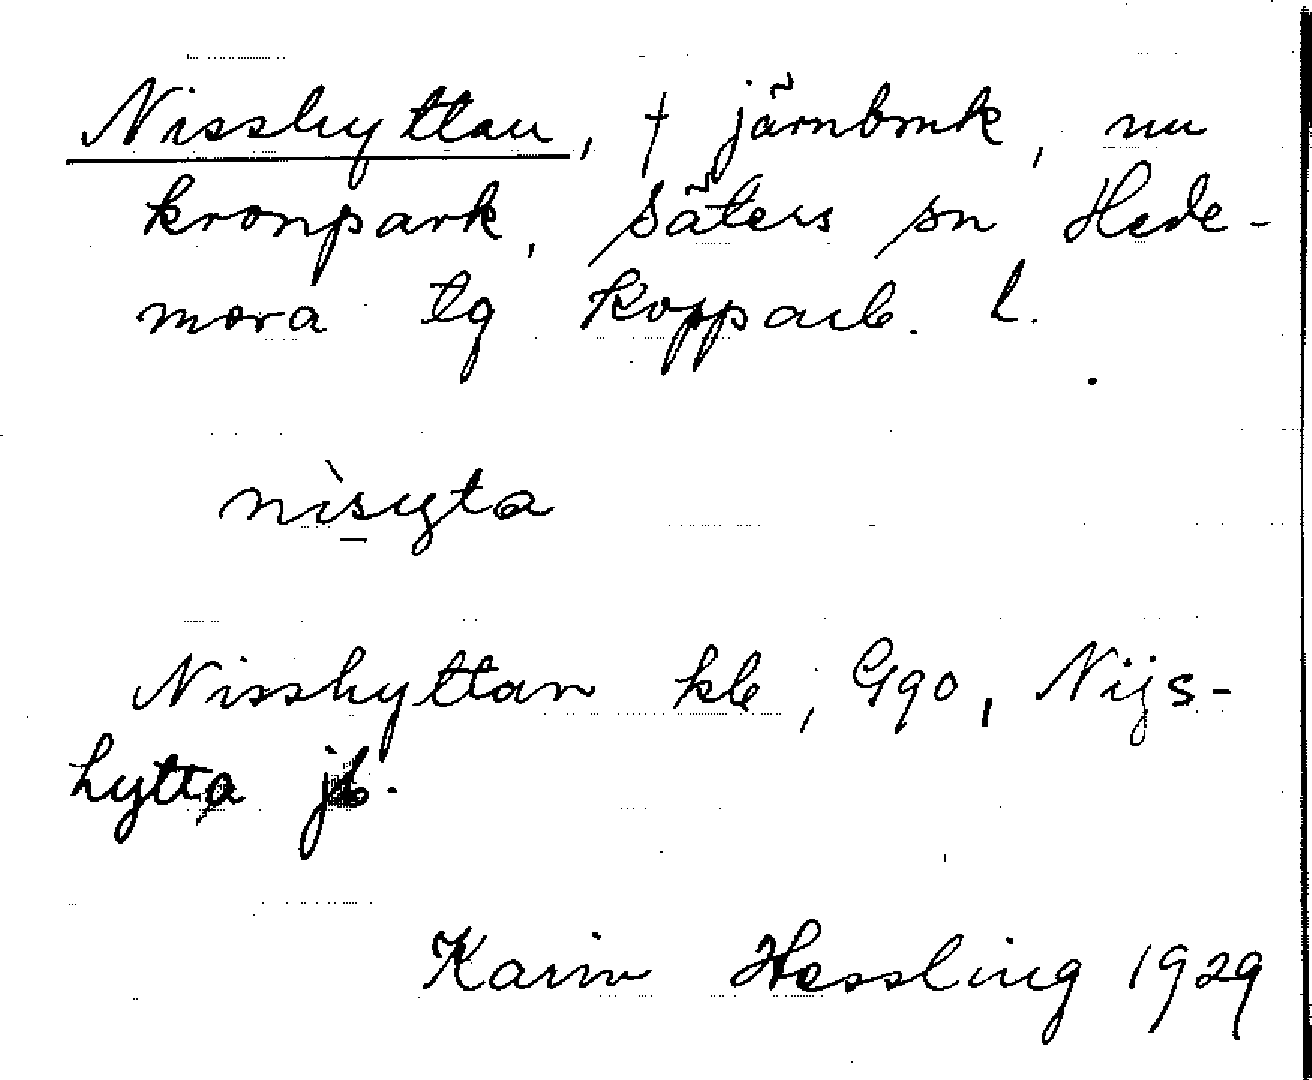 Nisshyttan, † järnbruk, nu
kronpark, Säters sn Hede-
mora tg Kopparb. l.
nìsyta
Nisshyttan kb; Gqo, Nijs-
hytta jb.
Karin Hessling 1929